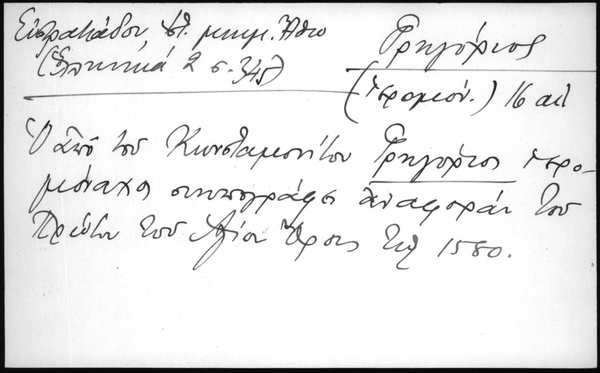 Εὐστρατιάδου, Ἱστ. μνημ. Ἄθω
(Ἑλληνικά 2 σ. 345)
Γρηγόριος
(ἱερομον.) 16 αἰ
Ὁ ἀπό τοῦ Κωνσταμονίτου Γρηγόριος ἱερο-
μόναχος συνυπογράφει ἀναφοράν τοῦ
Πρώτου τοῦ Ἁγίου Ὄρους τῷ 1580.